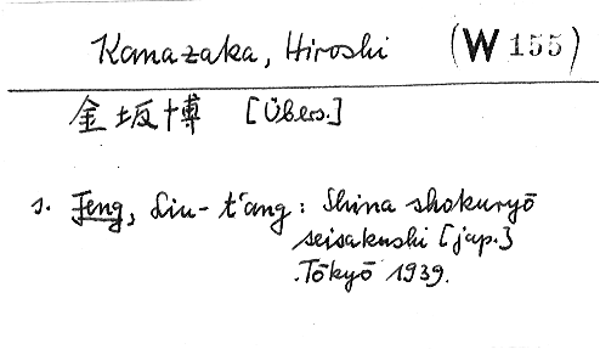 Kanazaka, Hiroshi (W 155)
金坂博 [Übers.]
s. Feng, Liu-t'ang: Shina shokuryō
seisakushi [jap.]
.Tōkyō 1939.